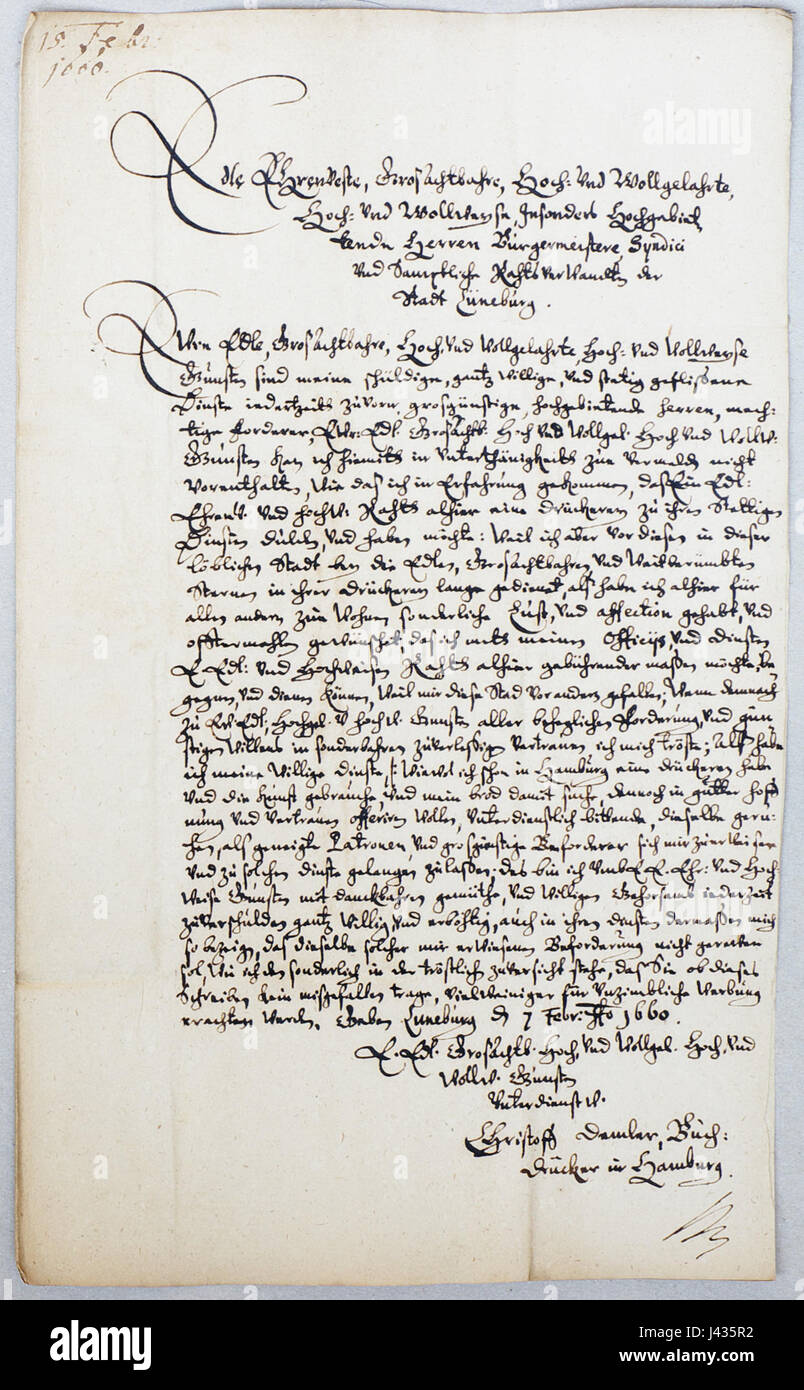 15. Febr.
1660.
Edle Ehrenveste, Grosachtbahre, Hoch- und Wollgelahrte,
Hoch- und Wollweyse, Insonders Hochgebie-
tende Herren Bürgermeistere, Syndici
und Samptliche Rahtsverwandten der
Stadt Lüneburg.
Ewr Edle, Grosachtbahre, Hoch, und Wollgelahrte, Hoch- und Wollweyse
Gunsten sind meine schüldige, gantz willige, und stetig geflißene
Dinste iederzeits zuvorn, grosgünstige, hochgebietende Herren, mech-
tige forderer, Ewr: Edl. Grosachtb: Hoch und Wollgel. Hoch und Wollw:
Gunsten kan ich hiemits in Unterthänigkeits zue vermelden nicht
vorenthalten, Wie das ich in Erfahrung gekommen, das Ein Edl:
Ehrenv. und hochw. Rahts alhier eine drückerey zu ihren Stettigen
Dinsten dulden, und haben möchte: Weil ich aber vor diesen in dieser
löblichen Stadt bey die Edlen, Grosachtbahren, und Weitberümbten
Sternen in ihrer drückerey lange gedienet, als habe ich alhier für
allen andern zue Wohnen sonderliche Lust, und affection gehabt, und
offtermahlen gewünschet, das ich mits meinen Officijs, und dinsten
E. Edl: und Hochweisen Rahts alhier gebührender maßen möchte, be-
gegnen, und dienen können, Weil mir diese Stad vor andern gefallen; Wenn demnach
zu Ew. Edl; Hochgel. V hochw. Gunsten aller beheglichen forderung, und gün-
stigen Willens in sonderbahren zuverleßigen vertrauen ich mich tröste; Alß habe
ich meine Willige dinste, Wiewol ich schon in Hamburg eine drückerey habe
und die Kunst gebrauche, und mein brod damit suche, dennoch in gutter hoff-
nung und vertrauen offeriren Wollen, Unterdienstlich bittende, dieselbe geru-
hen, als geneigte Patronen, und grosgünstige Beforderer sich mir zuerweisen
und zu solchen dinste gelangen zulaßen; das bin ich umb E. E. Ehr: und Hoch-
Weise Gunsten mit danckbahren gemüthe, und willigen Gehorsams iederzeit
zuverschulden gantz willig, und erböhtig, auch in ihren dinsten dermaßen mich
so bezeig, das dieselbe solcher mir erwiesenen Beforderung nicht gereuen
sol, Wie ich den sonderlich in der tröstlich zuversicht stehe, das Sie ob dieses
Schreiben kein misgefallen trage, vielweiniger für unzimbliche Werbung
erachten werden. Geben Lüneburg d 7 Febr: Ao 1660.
E. Edl. Grosachtb. Hoch, und Wollgel. Hoch, und
Wollw. Gunsten
Unterdienstw.
Christoff Demler, Büch:
drücker in Hamburg.
alamy
Image ID: J435R2
www.alamy.com